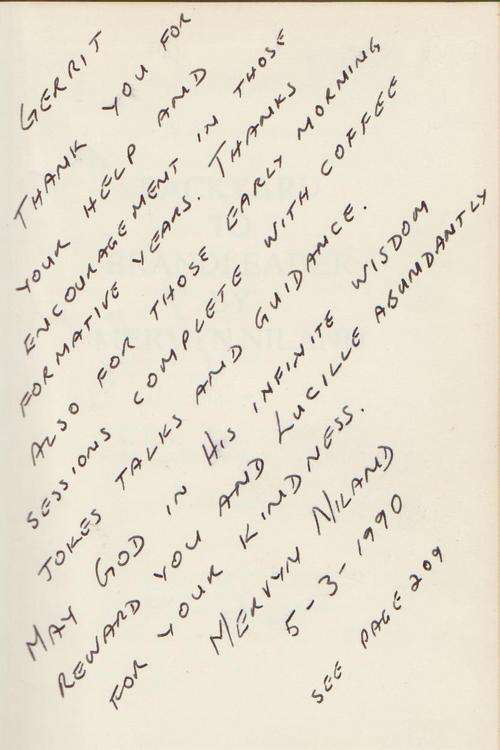 GERRIT
THANK YOU FOR
YOUR HELP AND
ENCOURAGEMENT IN THOSE
FORMATIVE YEARS. THANKS
ALSO FOR THOSE EARLY MORNING
SESSIONS COMPLETE WITH COFFEE
JOKES TALKS AND GUIDANCE.
MAY GOD IN HIS INFINITE WISDOM
REWARD YOU AND LUCILLE ABUNDANTLY
FOR YOUR KINDNESS.
MERVYN NILAND
5-3-1990
SEE PAGE 209